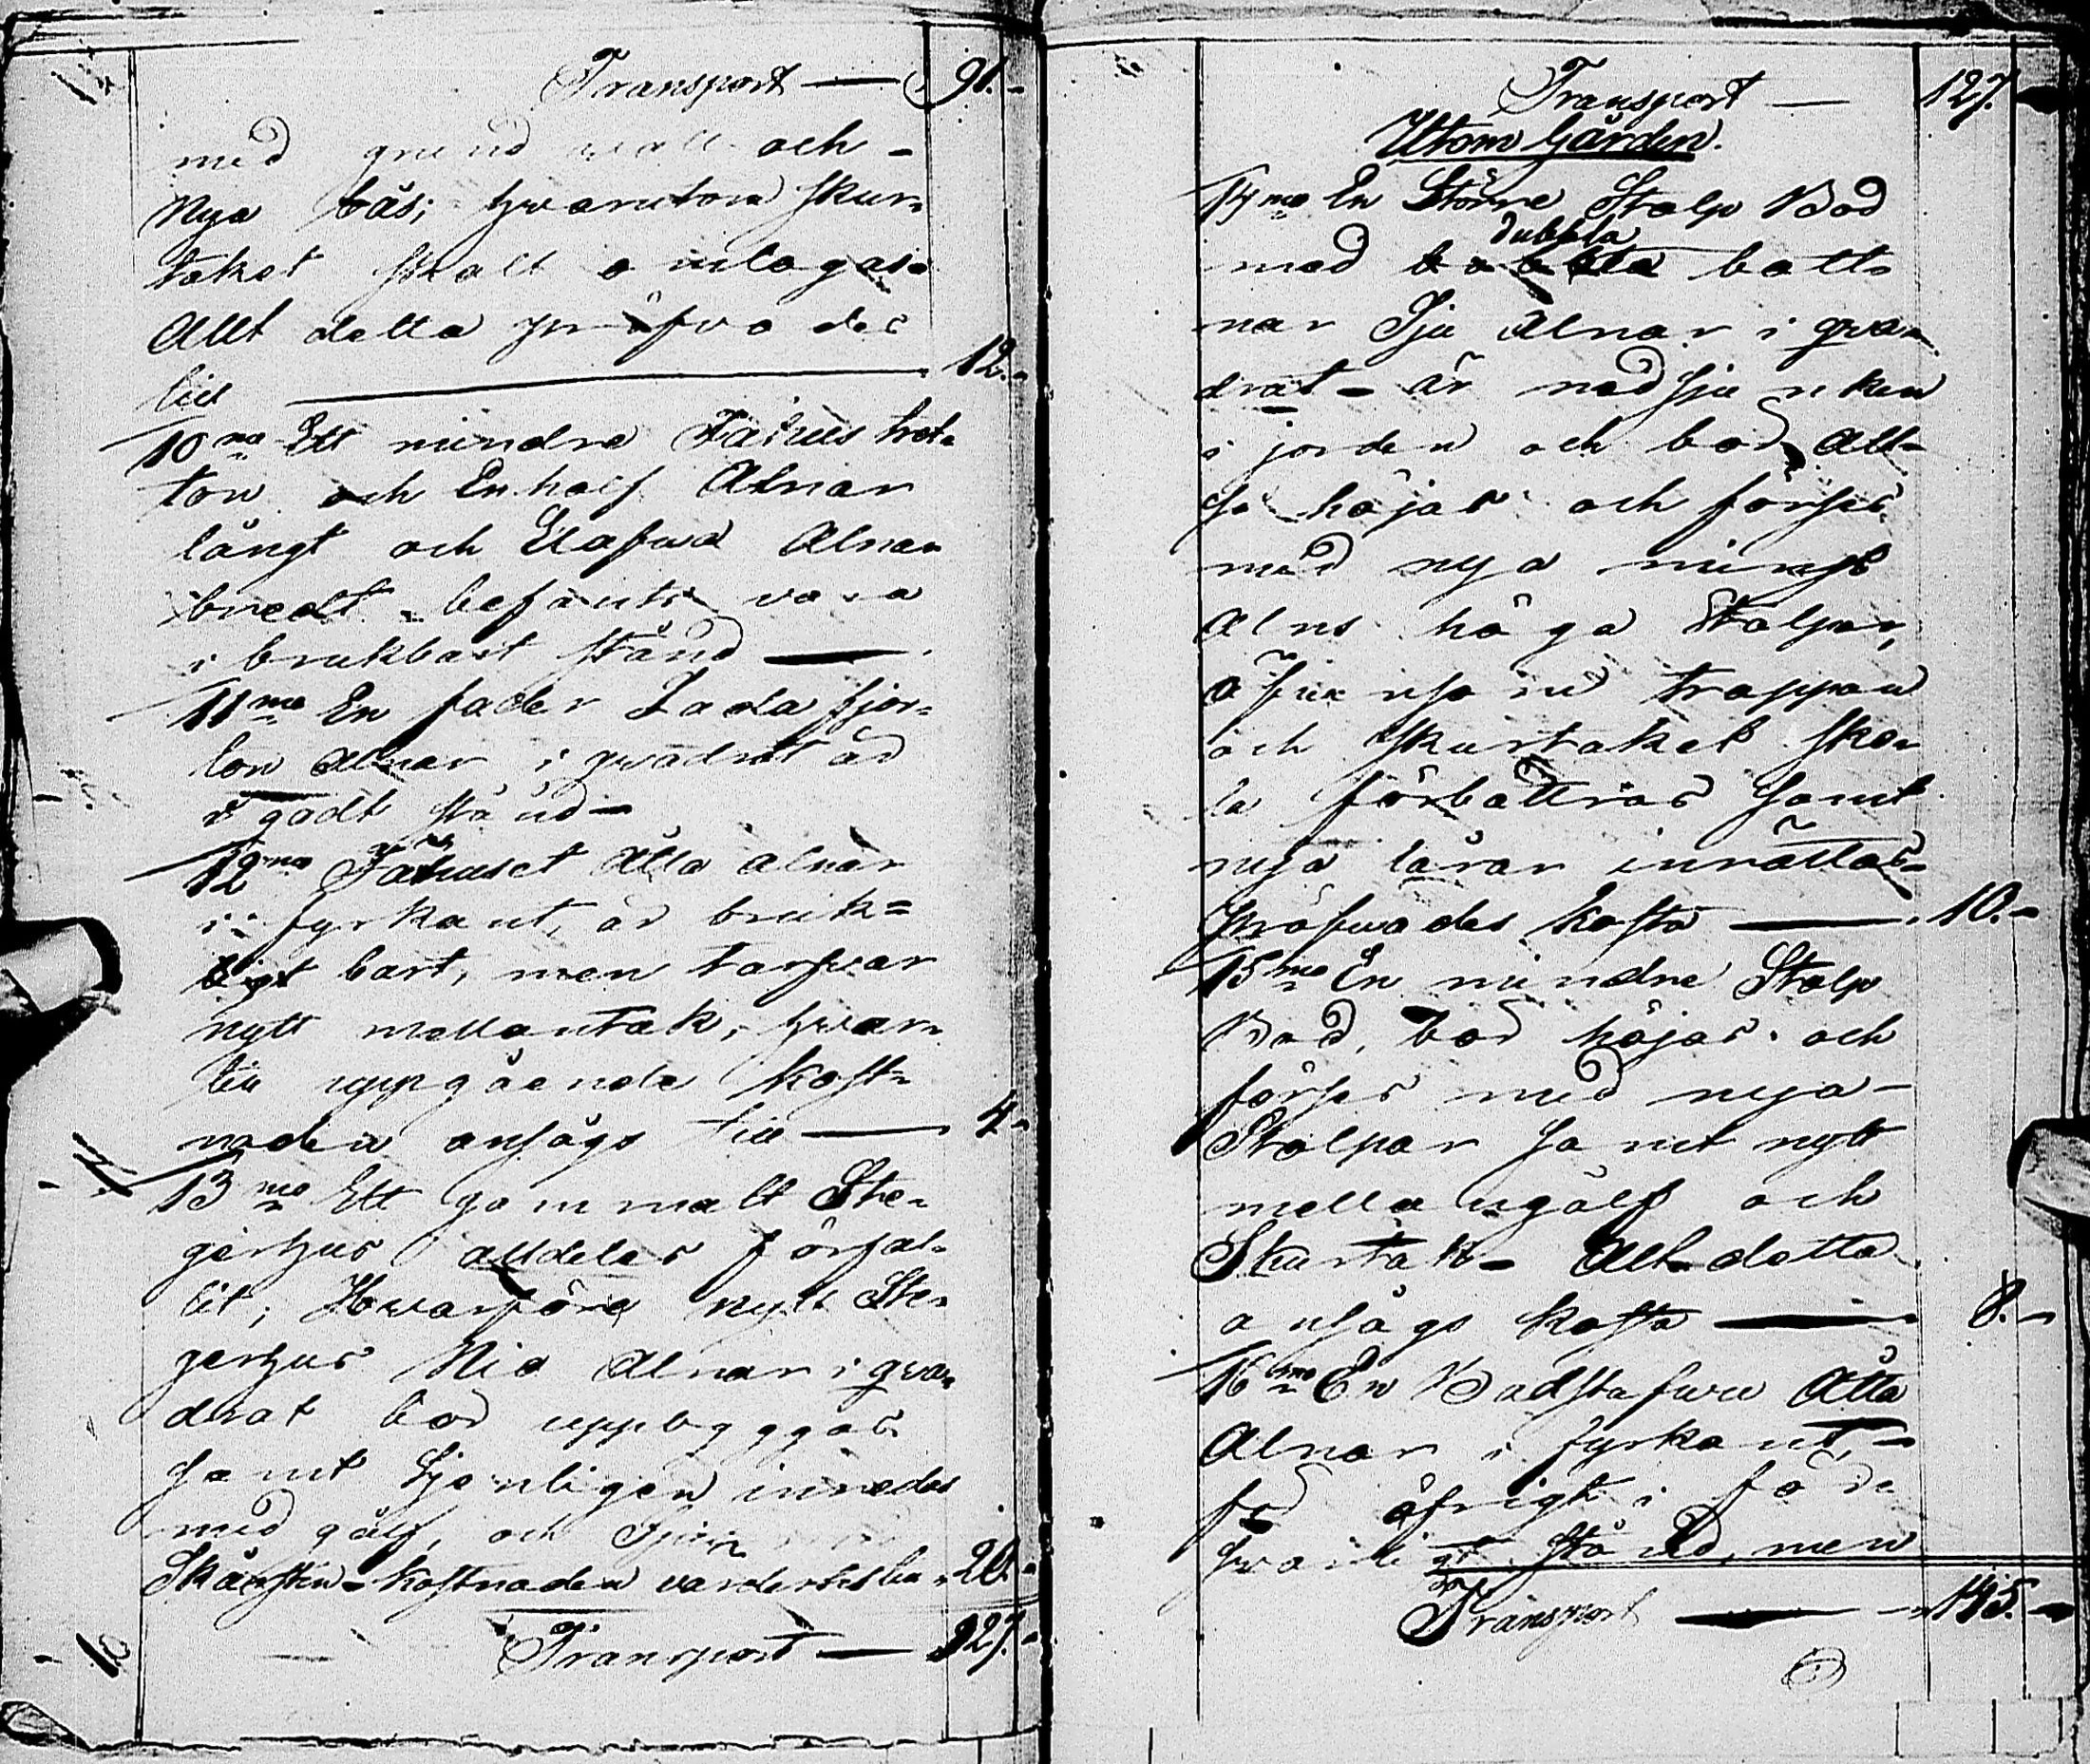 Transport — 91.-
med grund wall och -
Nya bås; hvarutom skur=
taket skall omlagas.
Allt detta pröfvades
till — 12.-
10mo Ett mindre Fähus tret=
ton och En half Alnar
långt och Elafva Alnar
bredt - befants vara
i brukbart stånd —
11mo En foder Lada fjor=
ton Alnar i qvadrat är
i godt stånd -
12mo Fähuset Åtta alnar
i fyrkant, är bruk=
ligt bart, men tarfvar
nytt mellantak, hvar=
till uppgående kost=
naden ansågs till — 4-
13mo Ett gammalt Ste=
gerhus alldeles förfal=
lit; Hwarföre nytt Ste=
gerhus Nio Alnar i qva=
drat bör uppbyggas
samt tjenligen inredes
med gålf, och Spis
Skårsten - Kostnaden värderdes till 20.-
Transport — 127.-
Transport — 127.-
Utom Gården.
14mo En Större Stolp Bod
dubbla
med bott=
nar Sju Alnar i qva=
drat - är nedsjunken
i jorden och bör allt=
så höjas och förses
med nya minst
Alns höga Stolpar,
äfven som trappan
och Skurtaket sko=
la förbättras samt
nya lårar inrättas -
Pröfvades kosta — 10.-
15mo En mindre Stolp
Bod, bör höjas och
förses med nya -
Stolpar samt nytt
mellangålf och
Skurtak - Allt detta
ansågs kosta — 8.-
16mo En Badstufvu Åtta
Alnar i fyrkant, -
för öfrigt i för=
svarligt stånd, men
Transport — 145.-